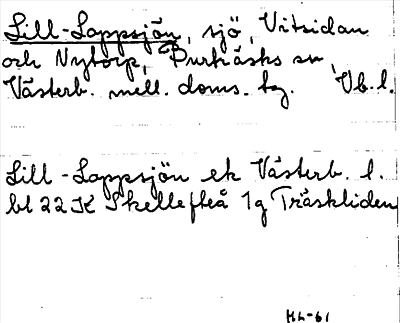 Lill-Lappsjön, sjö, Vitsidan
och Nytorp, Burträsks sn,
Västerb. mell. doms. tg. Vb.l.
Lill-Lappsjön ek Västerb. l.
bl 22 K Skellefteå 1g Träskliden
HL-61